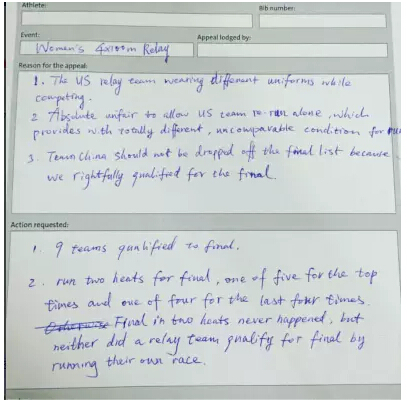 Athlete:
Bib number:
Event:
Appeal lodged by:
Women's 4x100m Relay
Reason for the appeal:
1. The US relay team wearing different uniforms while
competing.
2 Absolute unfair to allow US team re-run alone, which
provides with totally different, uncomparable condition for
3. Team China should not be dropped off the final list because
we rightfully qualified for the final.
Action requested:
1. 9 teams qualified to final.
2. run two heats for final, one of five for the top
times and one of four for the last four times.
Final in two heats never happened, but
neither did a relay team qualify for final by
running their own race.